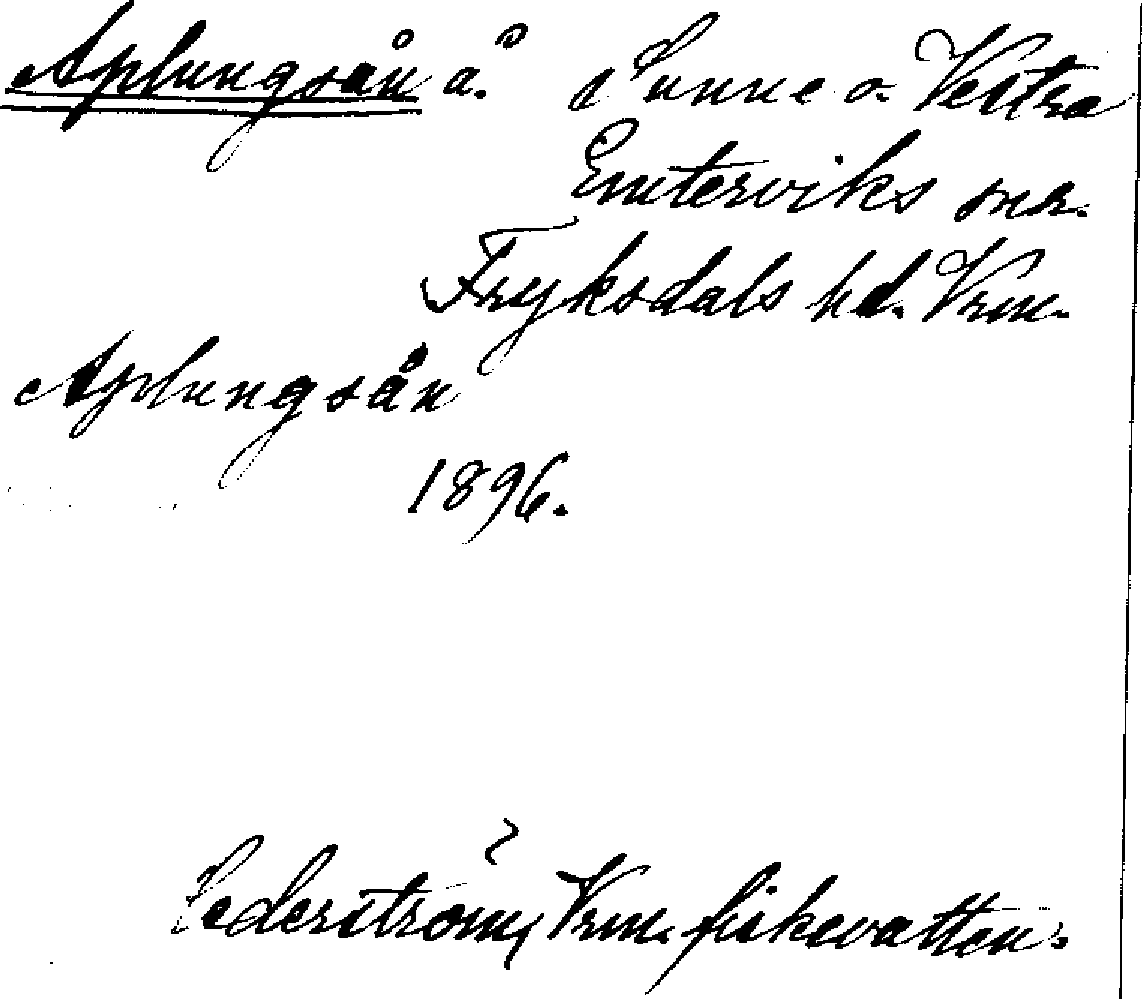 Aplungsån å. Sunne o. Vestra
Emterviks snr.
Fryksdals hd. Vrm.
Aplungsån
1896.
Cederström, Vrm. fiskevatten.